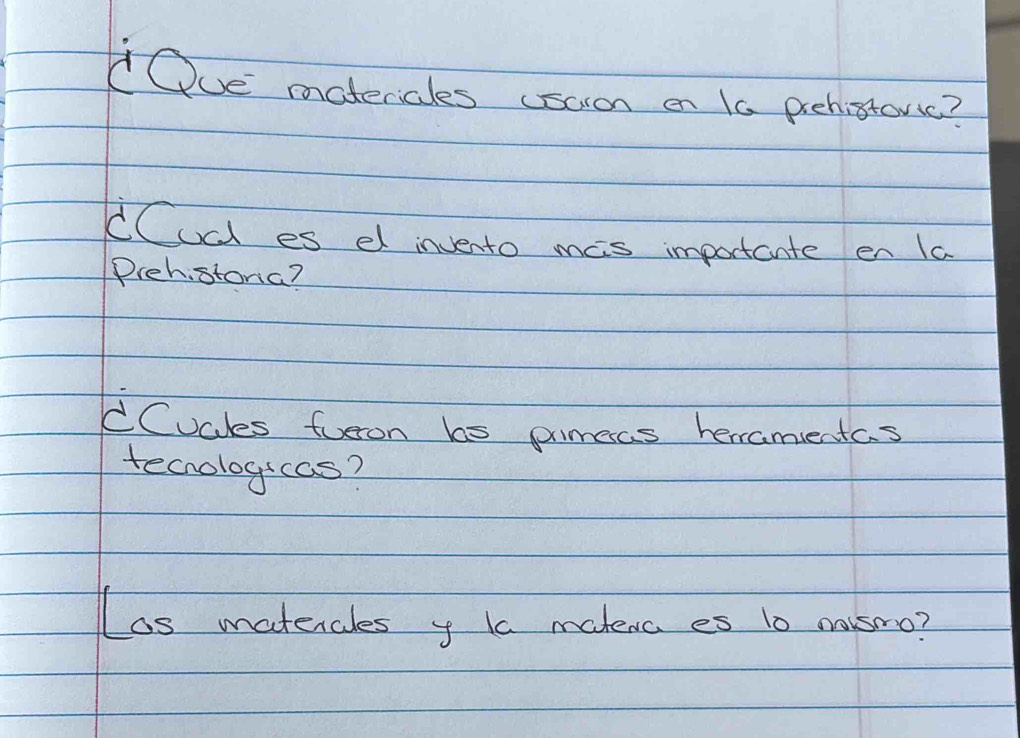 ¿Qué materiales usaron en la prehistoria?
¿Cual es el invento más importante en la
Prehistoria?
¿Cuales fueron las primeras herramientas
tecnologicas?
Los materiales y la materia es lo mismo?